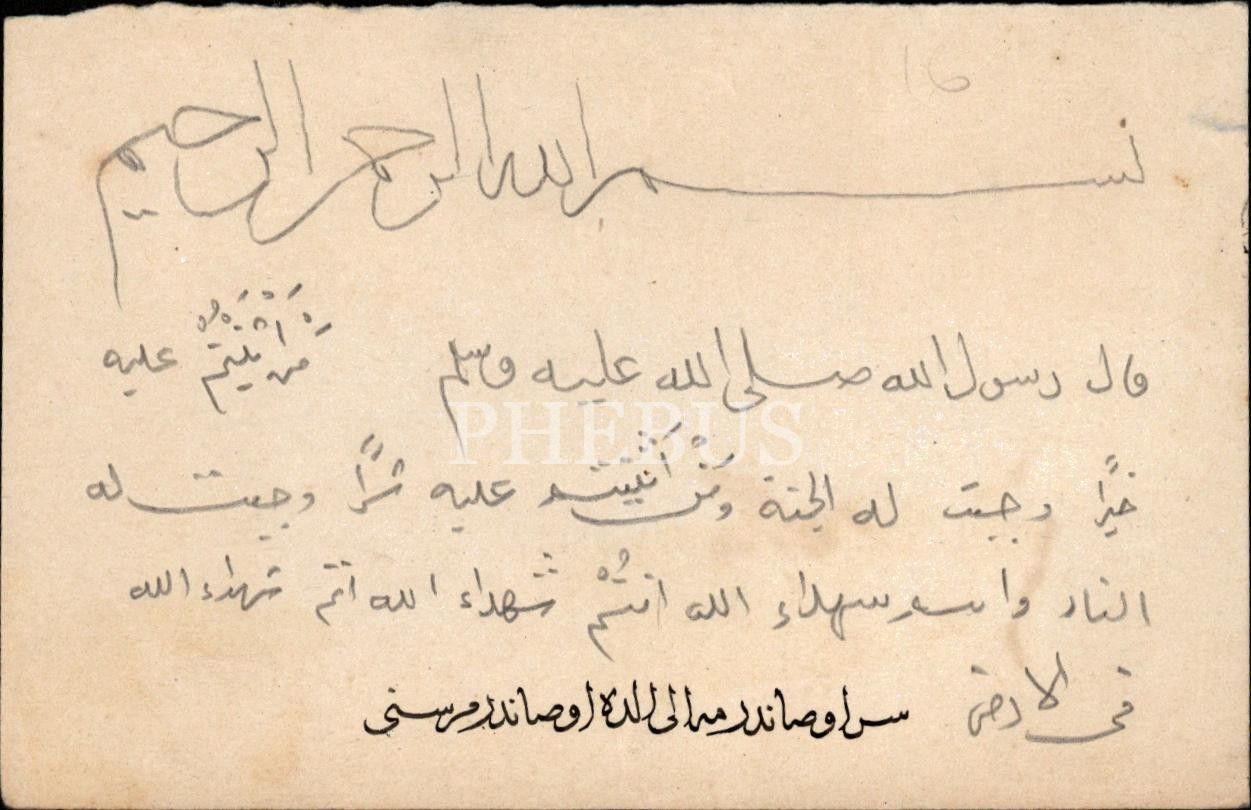 16
بسم الله الرحمن الرحيم
قال رسول الله صلى الله عليه وسلم مَنْ اَثْنَيْتُمْ عليه
خيراً وجبت له الجنة ومَنْ اَثْنَيْتم عليه شراً وجبت له
النار وانتم شهداء الله انتُمْ شهداء الله انتم شهداء الله
فى الارض
PHEBUS